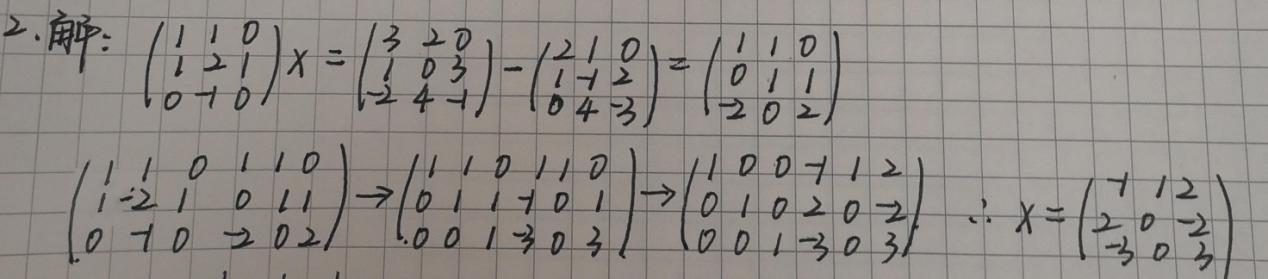 2.解: (1 1 0 / 1 2 1 / 0 -1 0) X = (3 2 0 / 1 0 3 / -2 4 -1) - (2 1 0 / 1 -1 2 / 0 4 -3) = (1 1 0 / 0 1 1 / -2 0 2)
(1 1 0 1 1 0 / 1 -2 1 0 1 1 / 0 -1 0 -2 0 2) → (1 1 0 1 1 0 / 0 1 1 -1 0 1 / 0 0 1 -3 0 3) → (1 0 0 -1 1 2 / 0 1 0 2 0 -2 / 0 0 1 -3 0 3) ∴ X = (-1 1 2 / 2 0 -2 / -3 0 3)